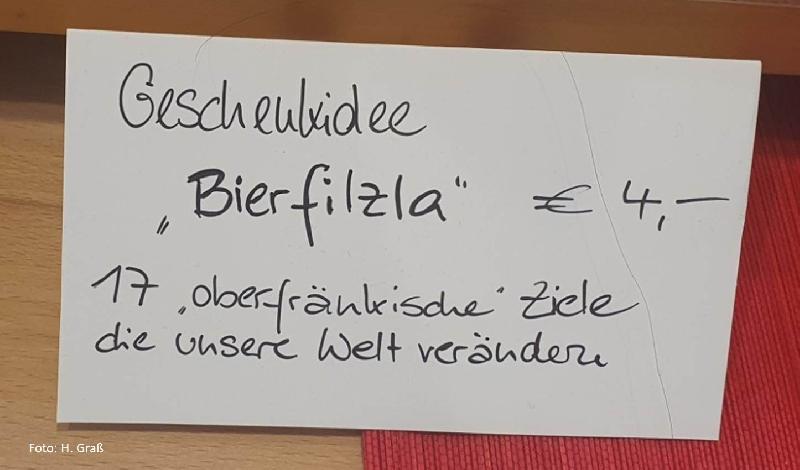 Geschenkidee
„Bierfilzla“ € 4,—
17 ‚oberfränkische‘ Ziele
die unsere Welt verändern
Foto: H. Graß